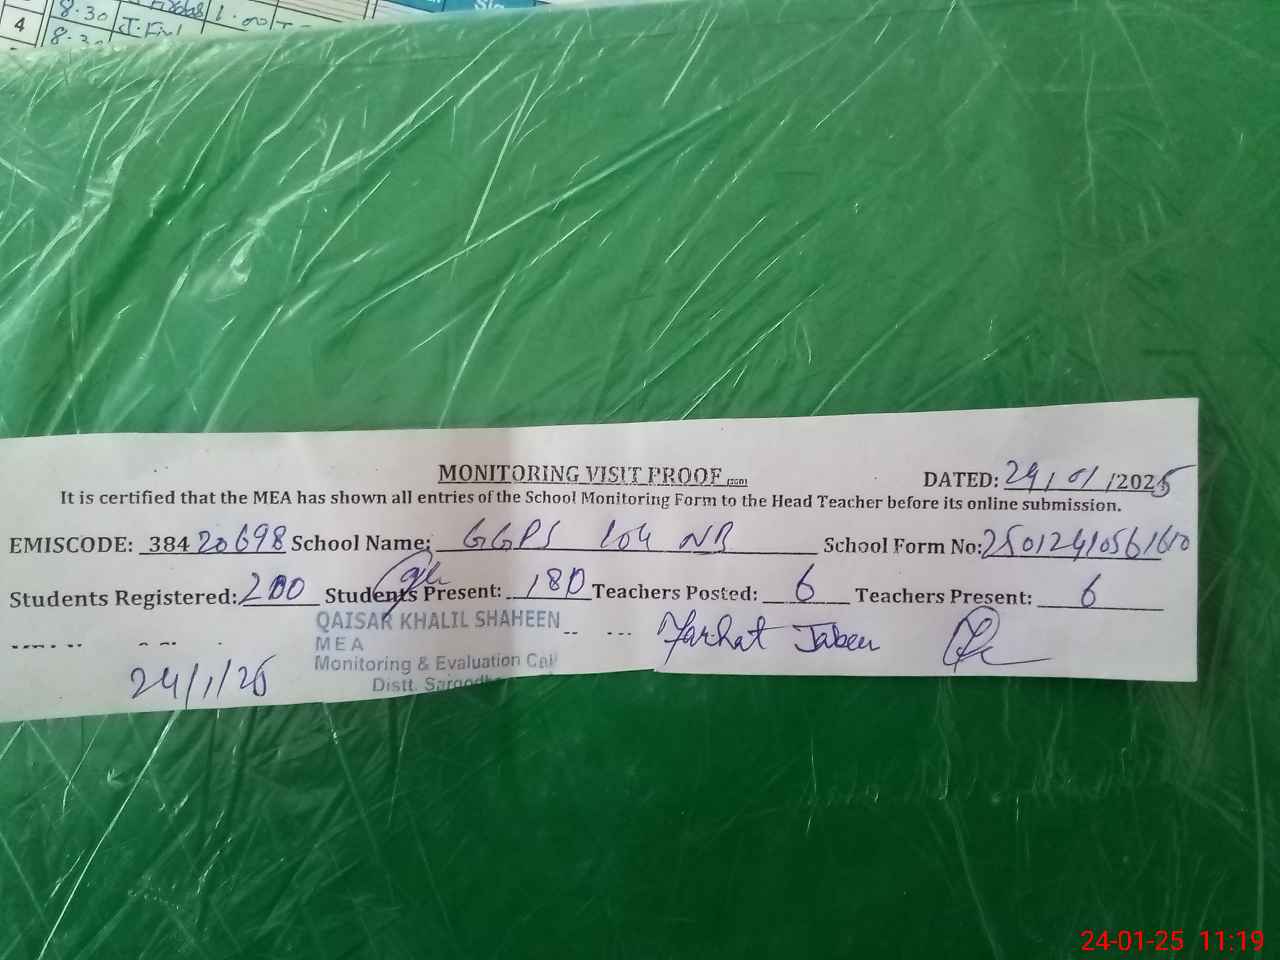 4 8.30 J. Fiz 1.00
8.30
MONITORING VISIT PROOF
DATED: 24/01/2025
It is certified that the MEA has shown all entries of the School Monitoring Form to the Head Teacher before its online submission.
EMISCODE: 38420698 School Name: GGPS 104 NB School Form No: 2501241056161610
Students Registered: 200 Students Present: 180 Teachers Posted: 6 Teachers Present: 6
QAISAR KHALIL SHAHEEN
MEA
Monitoring & Evaluation Cell
Distt. Sargodha
Farhat Jabeen
24/1/25
24-01-25 11:19